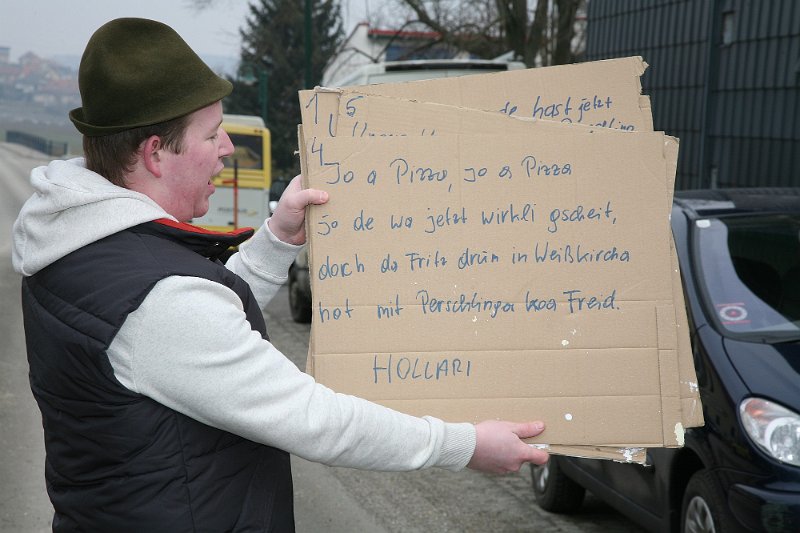 1 5 de hast jetzt
4
Jo a Pizza, jo a Pizza
jo de wa jetzt wirkli gscheit,
doch da Fritz drün in Weißkircha
hot mit Perschlinga koa Freid.
HOLLARI